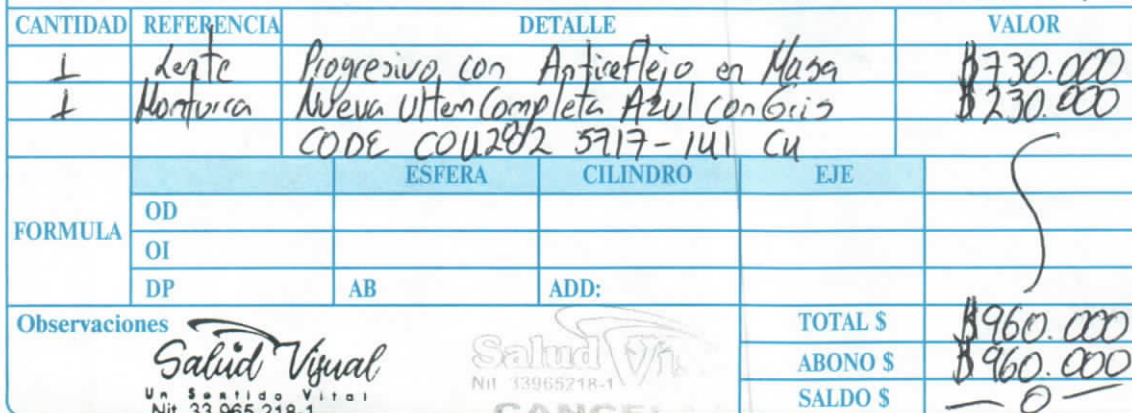 CANTIDAD REFERENCIA DETALLE VALOR
1 Lente Progresivo con Antireflejo en Masa $730.000
1 Montura Nueva Ultem Completa Azul con Gris $230.000
CODE 5717-141
ESFERA CILINDRO EJE
FORMULA
OD
OI
DP AB ADD:
Observaciones
Salud Visual
Un Sentido Vital
Nit 33.965.218-1
Salud Vi
Nit 33965218-1
CANCEL
TOTAL $ $960.000
ABONO $ $960.000
SALDO $ — 0 —